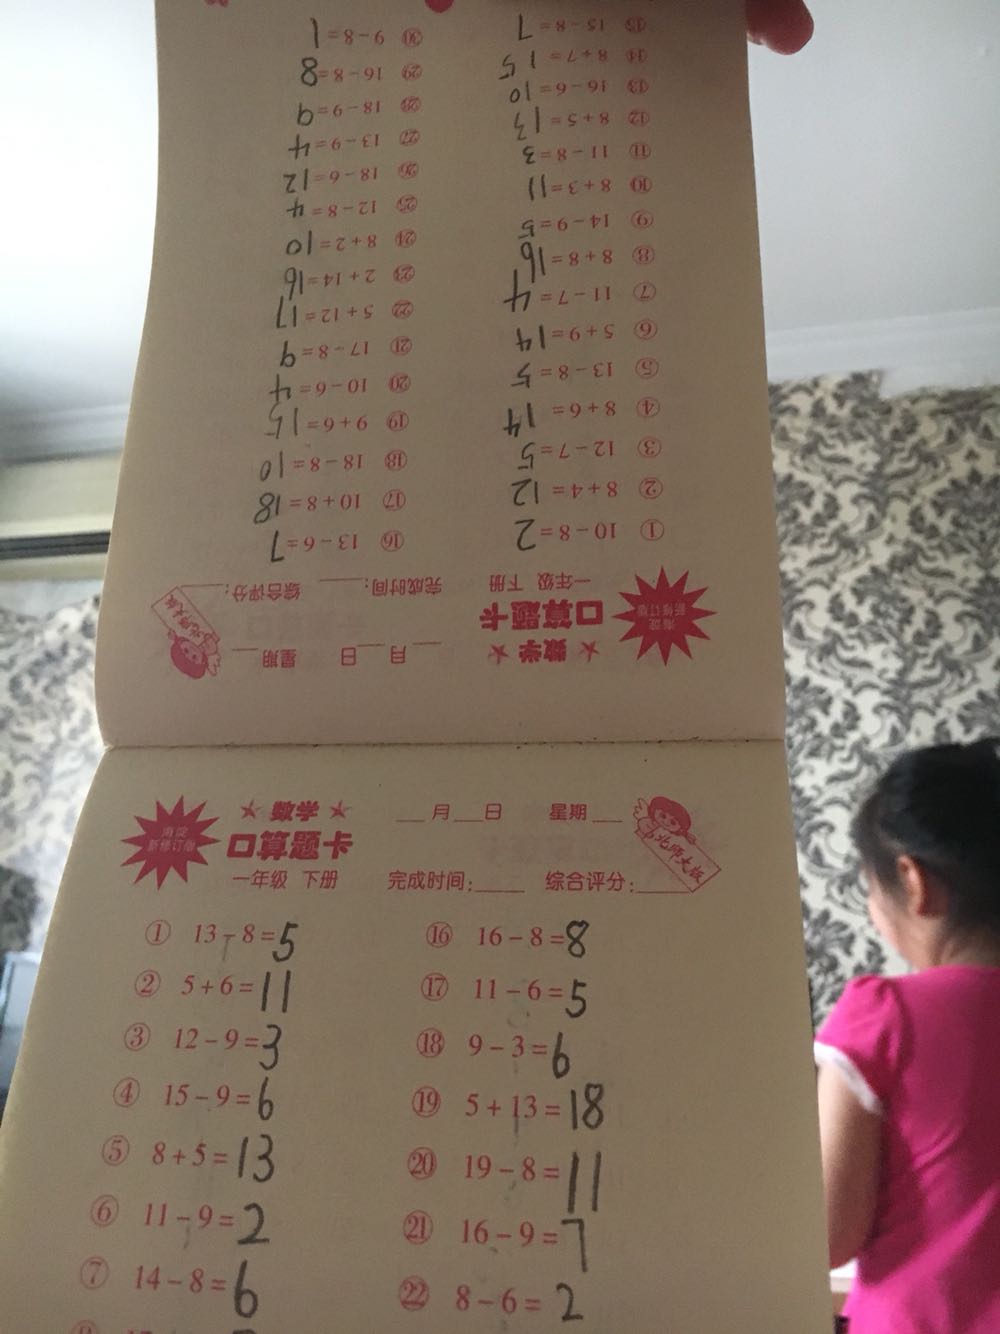 海淀
新修订版
数学
口算题卡
一年级 下册
月 日 星期
完成时间: 综合评分:
北师大版
① 10-8=2
② 8+4=12
③ 12-7=5
④ 8+6=14
⑤ 13-8=5
⑥ 5+9=14
⑦ 11-7=4
⑧ 8+8=16
⑨ 14-9=5
⑩ 8+3=11
⑪ 11-8=3
⑫ 8+5=13
⑬ 16-6=10
⑭ 8+7=15
⑮ 15-8=7
⑯ 13-6=7
⑰ 10+8=18
⑱ 18-8=10
⑲ 9+6=15
⑳ 10-6=4
㉑ 17-8=9
㉒ 5+12=17
㉓ 2+14=16
㉔ 8+2=10
㉕ 12-8=4
㉖ 18-6=12
㉗ 13-9=4
㉘ 18-9=9
㉙ 16-8=8
㉚ 9-8=1
海淀
新修订版
数学
口算题卡
一年级 下册
月 日 星期
完成时间: 综合评分:
北师大版
① 13-8=5
② 5+6=11
③ 12-9=3
④ 15-9=6
⑤ 8+5=13
⑥ 11-9=2
⑦ 14-8=6
⑯ 16-8=8
⑰ 11-6=5
⑱ 9-3=6
⑲ 5+13=18
⑳ 19-8=11
㉑ 16-9=7
㉒ 8-6=2